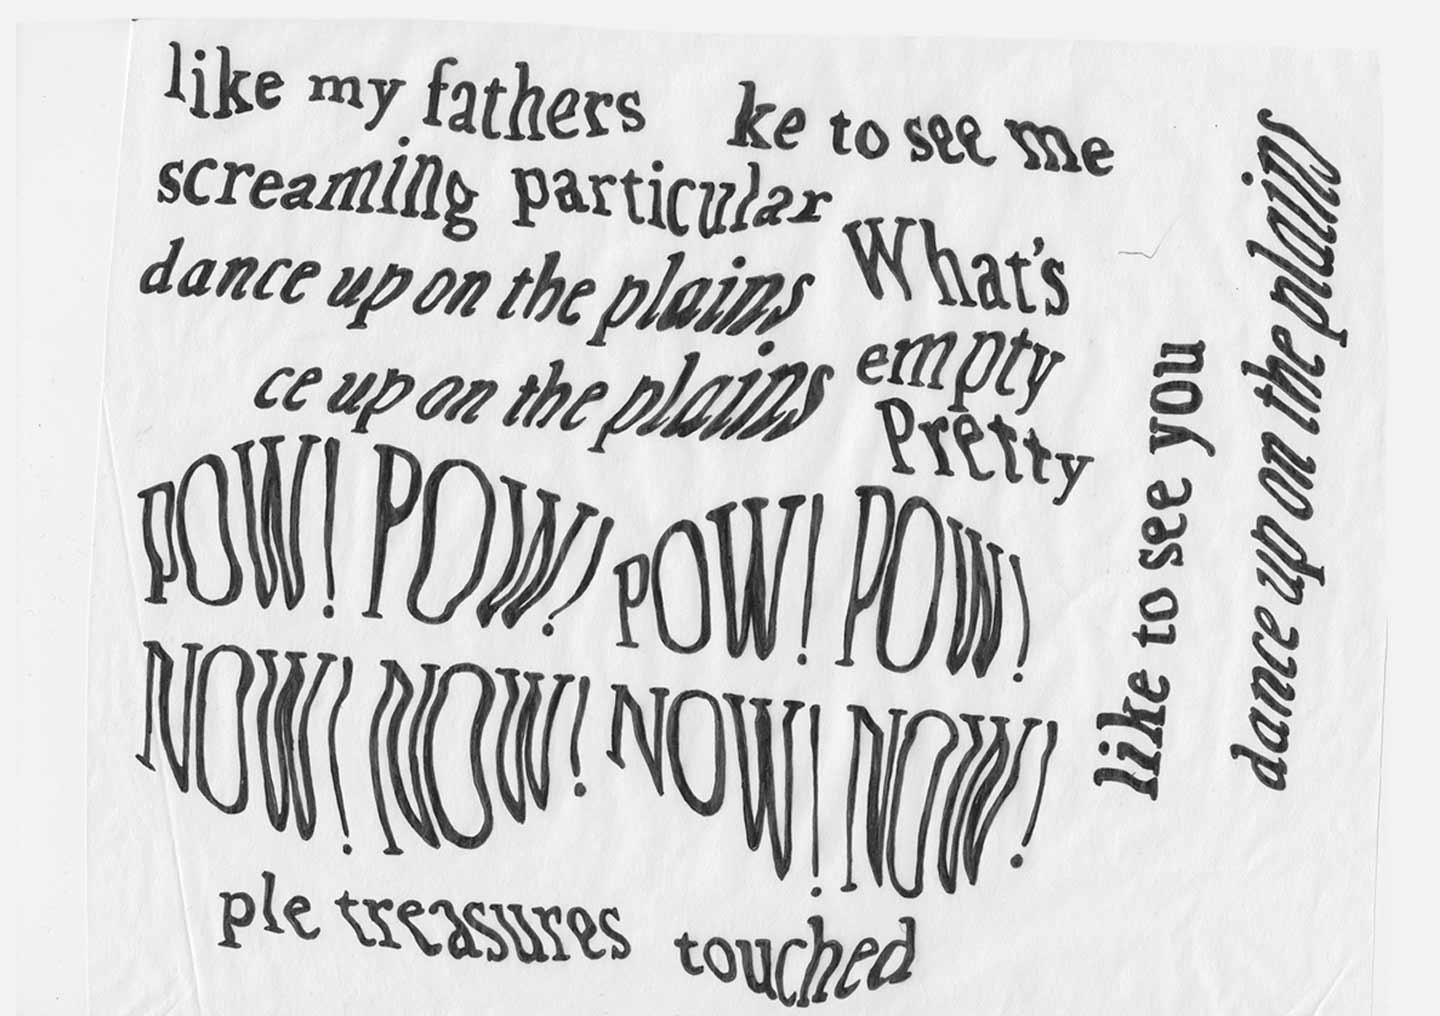 like my fathers
ke to see me
screaming particular
What's
dance up on the plains
empty
ce up on the plains
Pretty
POW! POW! POW! POW!
NOW! NOW! NOW! NOW!
ple treasures touched
like to see you
dance up on the plains